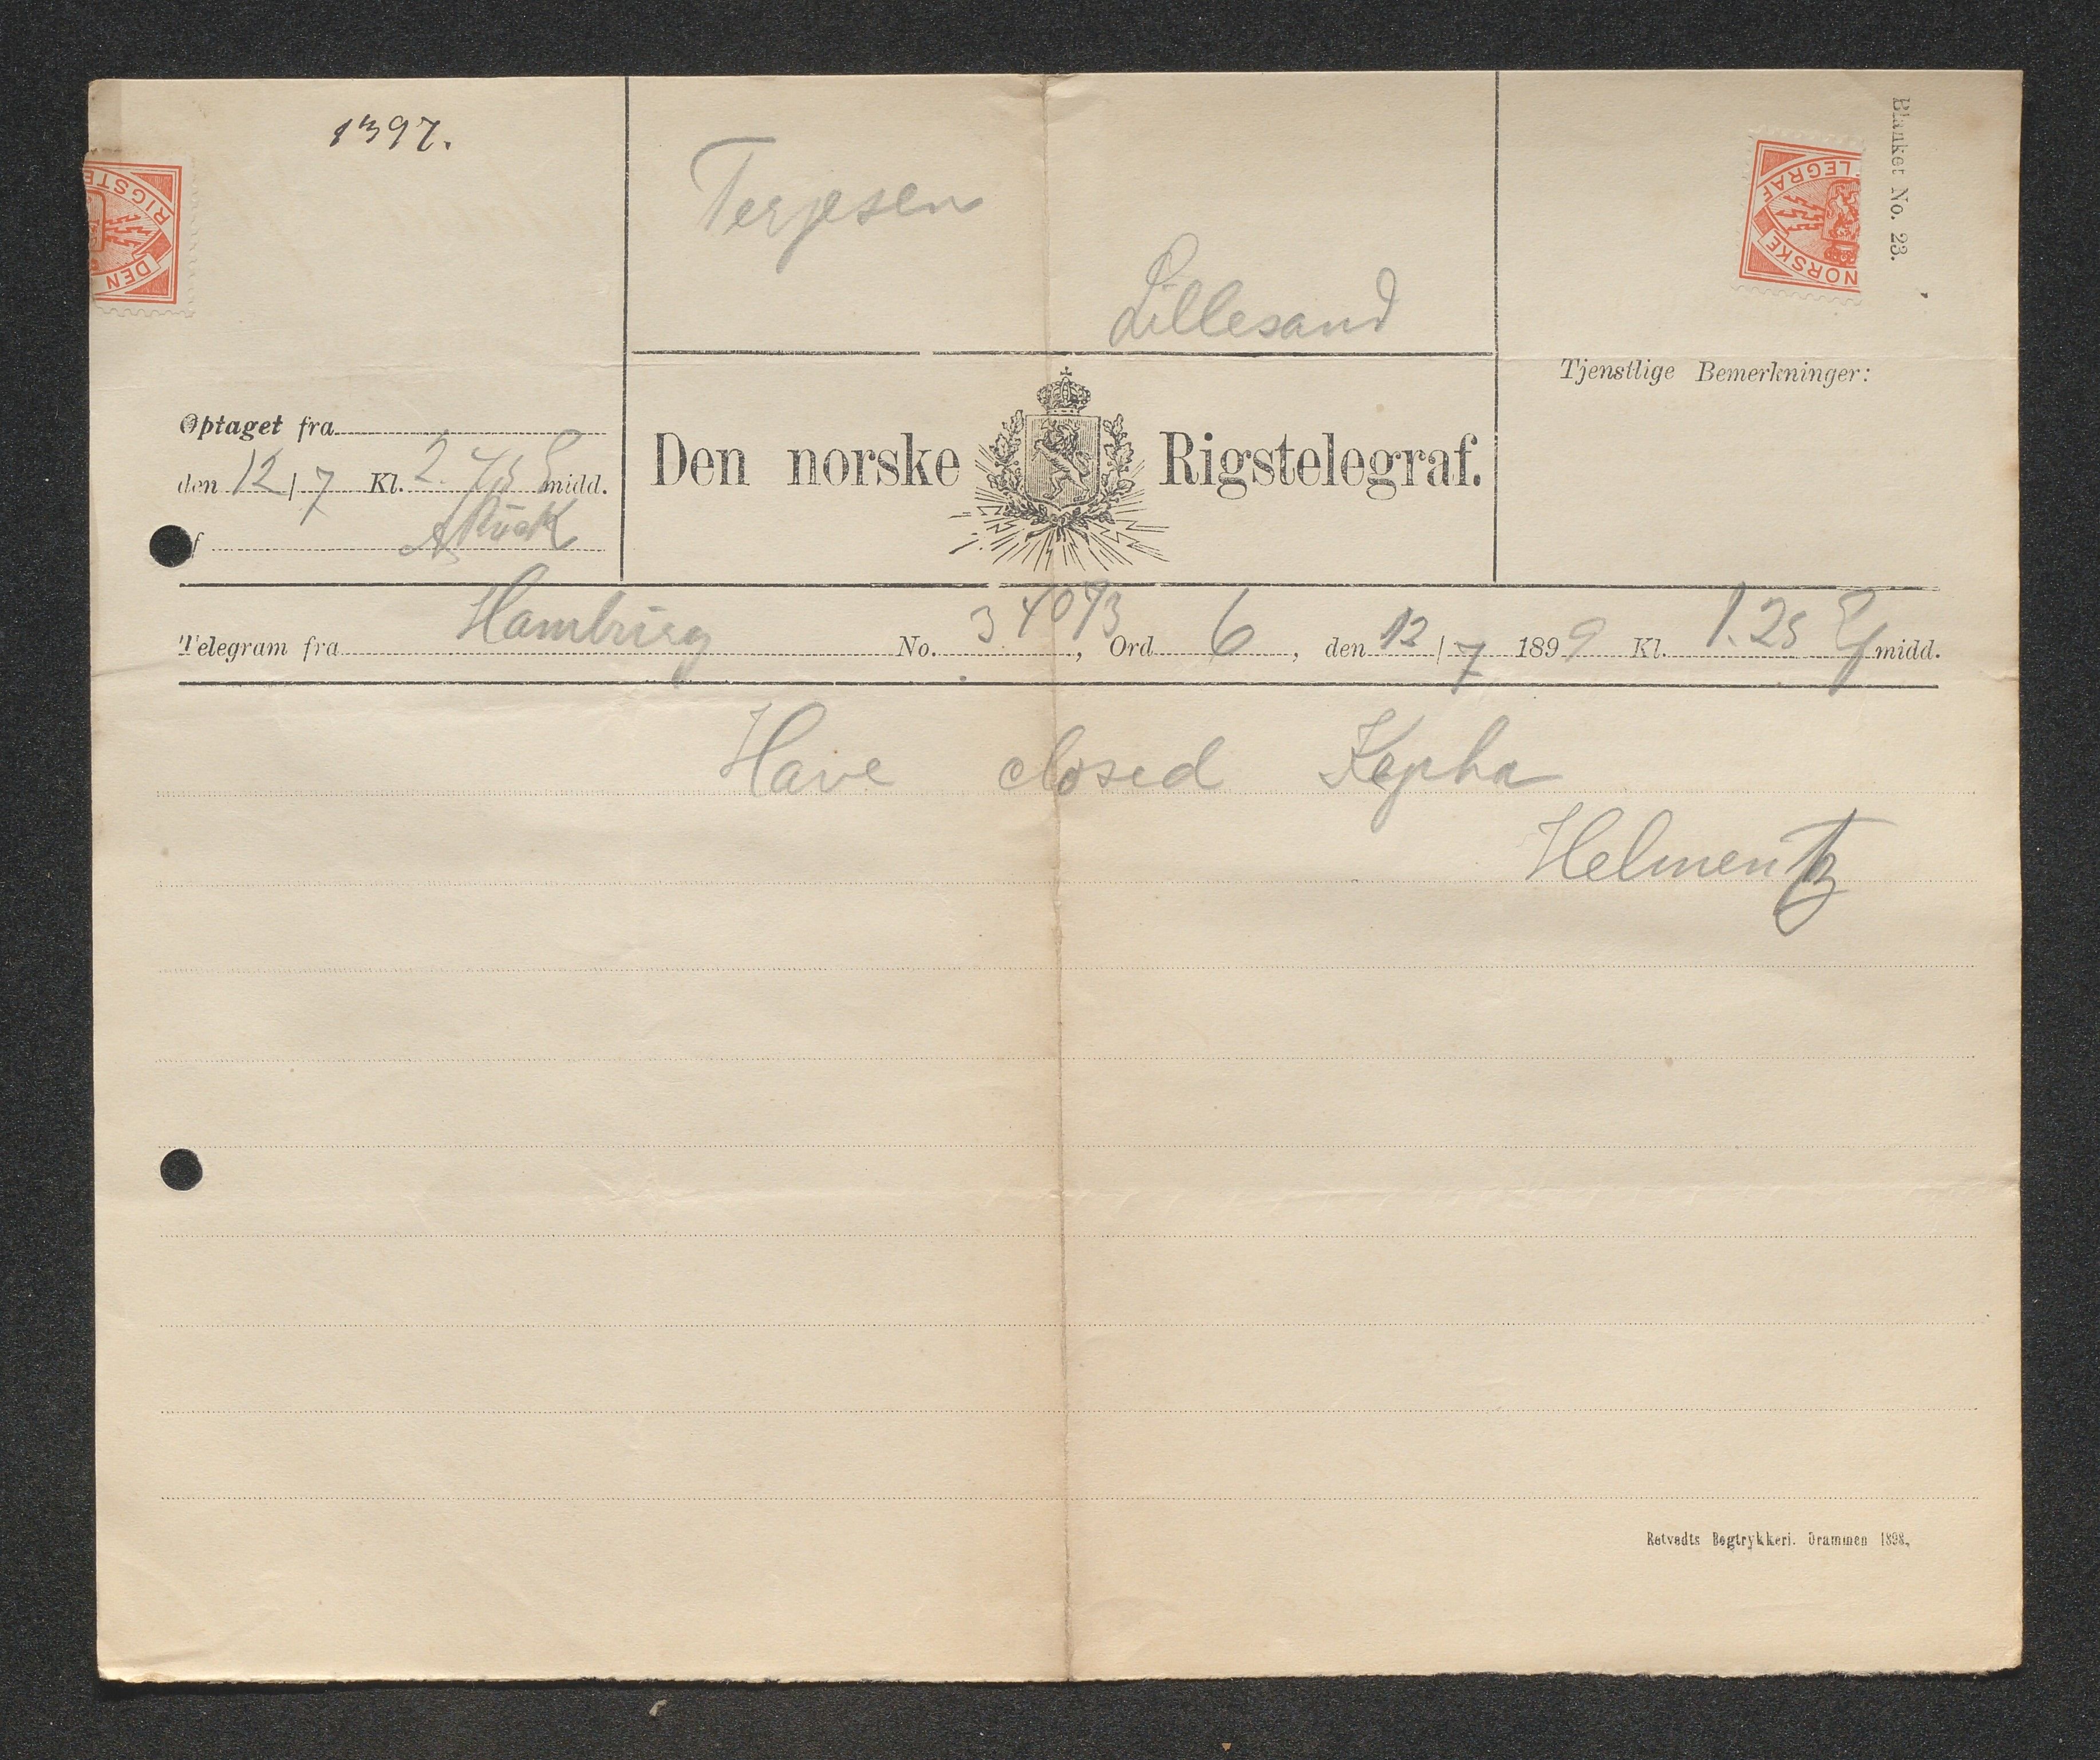 1397.
Blanket No. 23.
RIGSTE
DEN
LEGRAF
NORSKE
Terjesen
Lillesand
Tjenstlige Bemerkninger:
Optaget fra
den 12/7 Kl. 2. 45 E midd.
Den norske Rigstelegraf.
Telegram fra Hamburg No. 34093, Ord 6, den 12/7 1899 Kl. 1.25 Ef midd.
Have closed Kepha
Helmentz
Retvedts Bogtrykkeri. Drammen 1898.